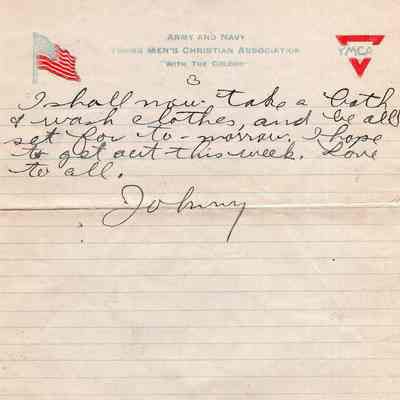 ARMY AND NAVY
YOUNG MEN'S CHRISTIAN ASSOCIATION
"WITH THE COLORS"
YMCA
3
I shall now take a bath
& wash clothes, and be all
set for to-morrow. I hope
to get out this week. Love
to all.
Johnny